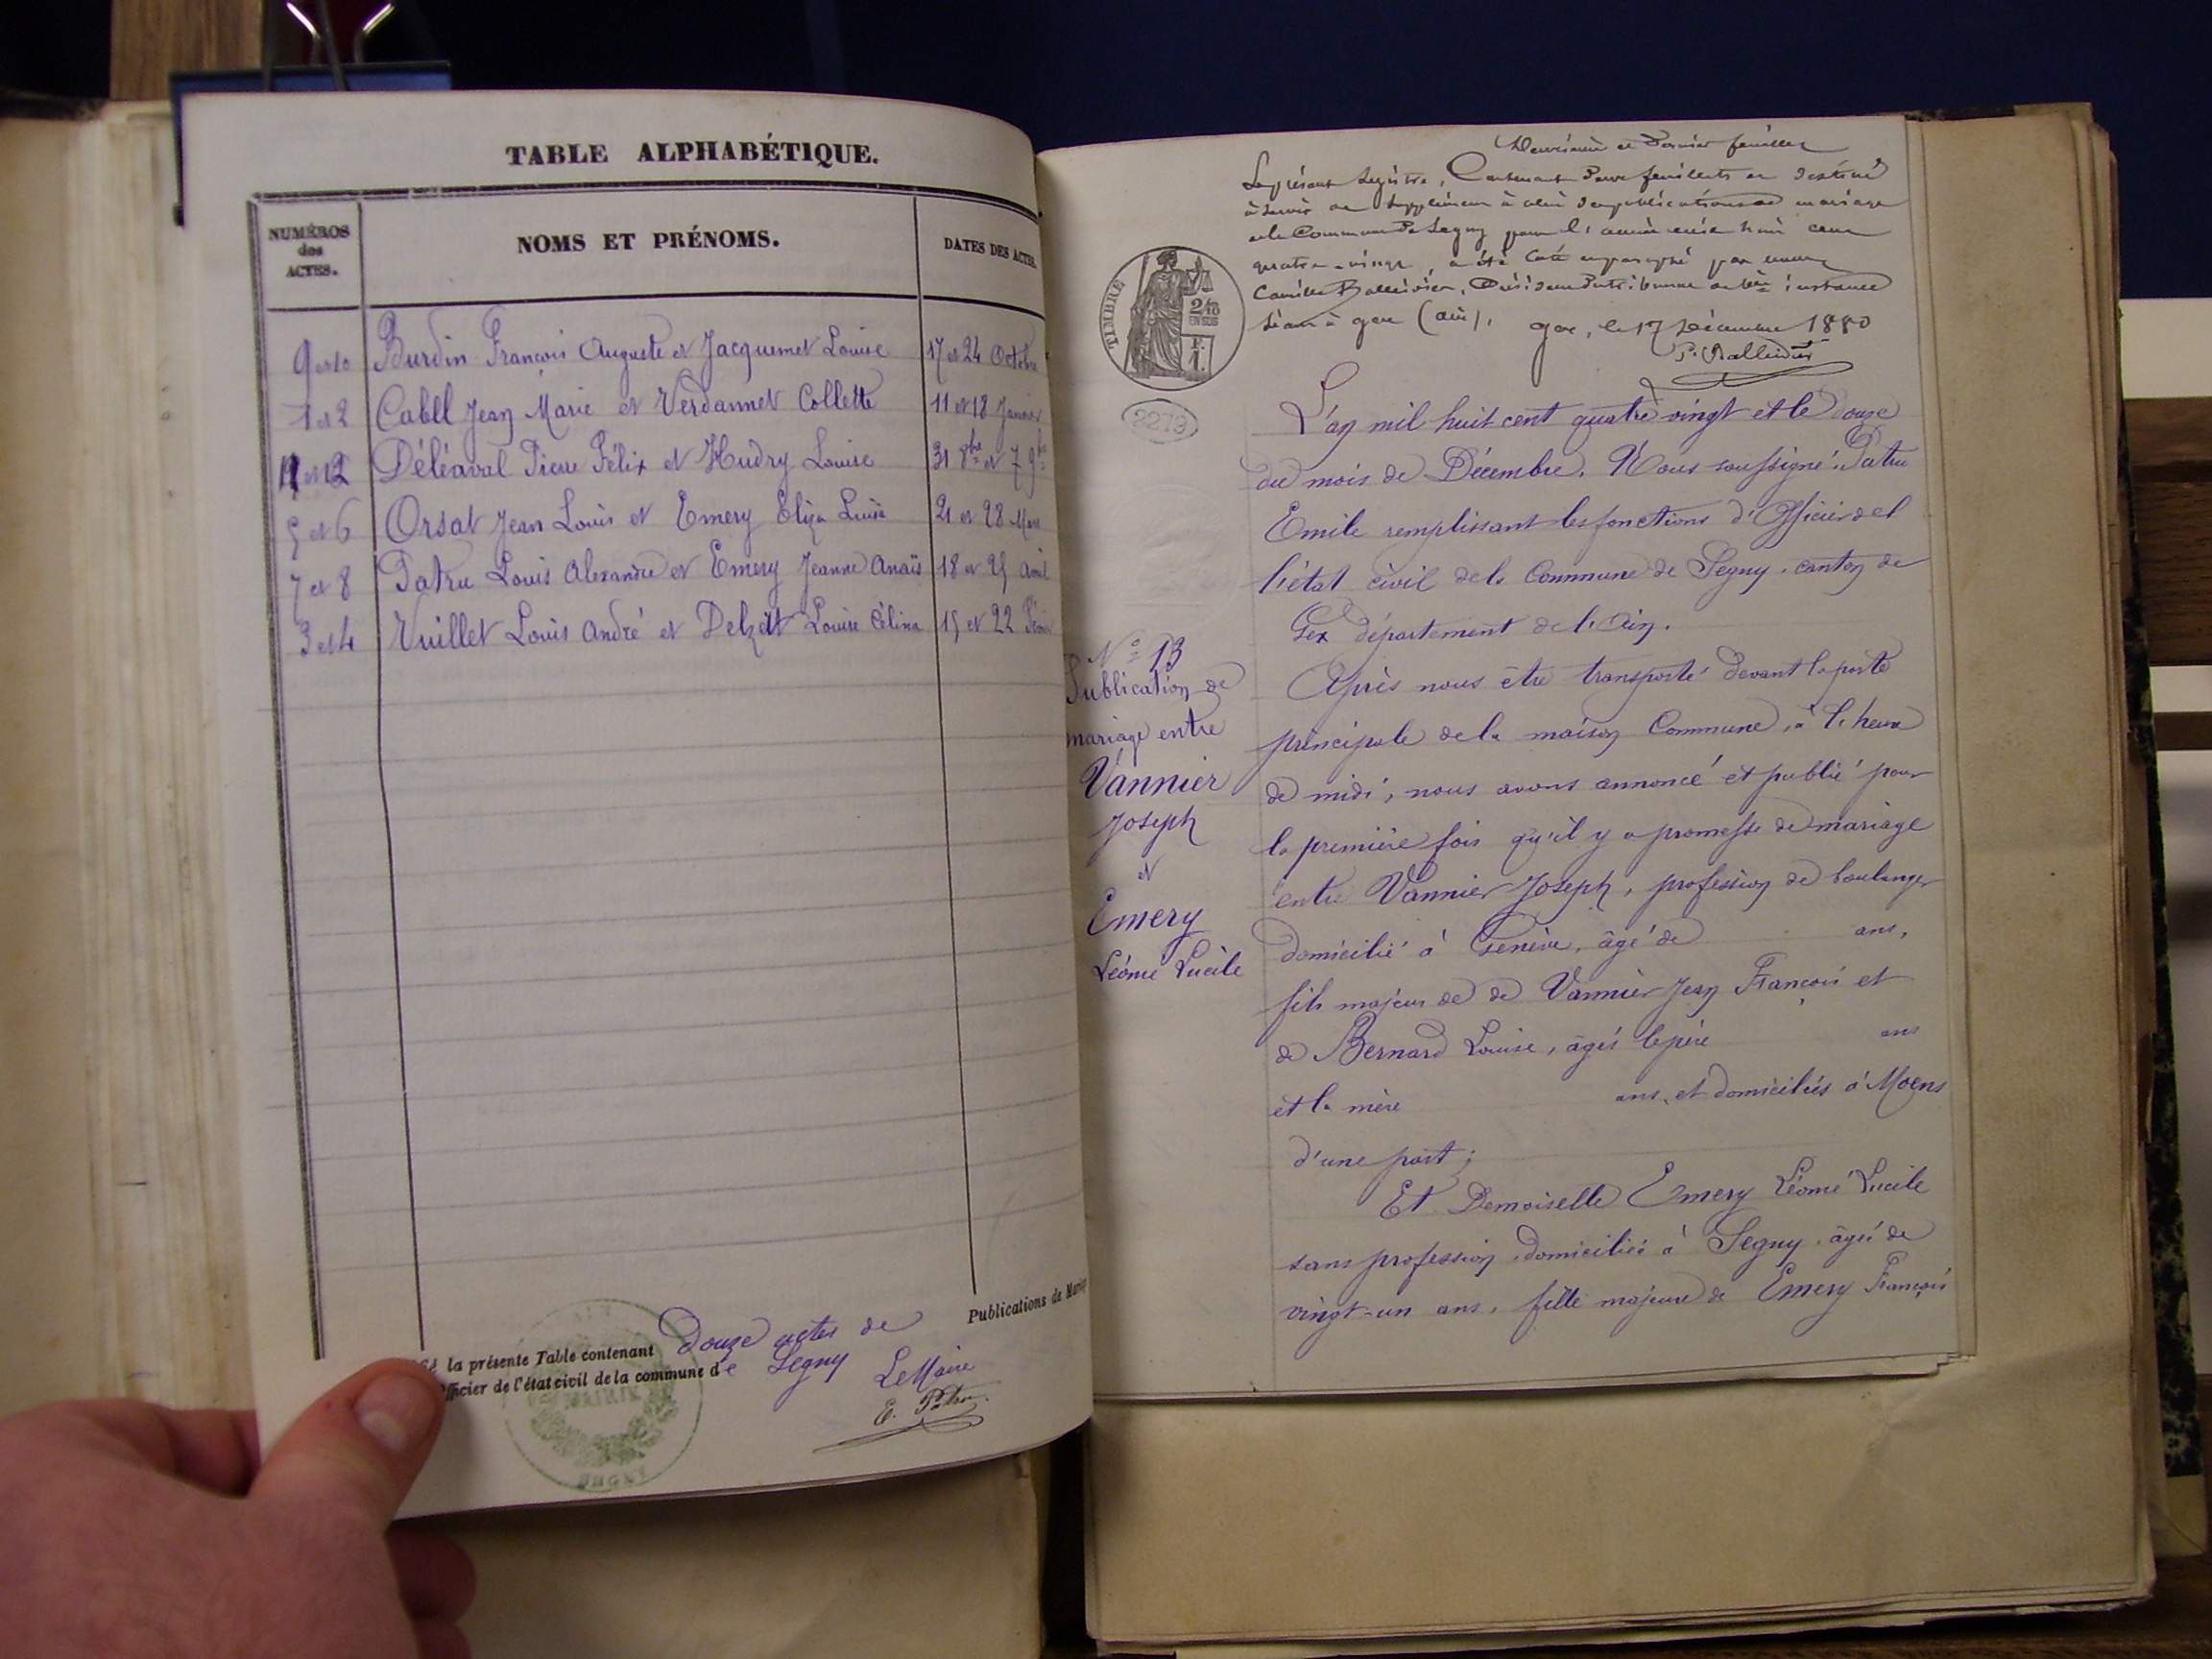 TABLE ALPHABÉTIQUE.
NUMÉROS des ACTES.
NOMS ET PRÉNOMS.
DATES DES ACTES.
9 et 10 Burdin François Auguste et Jacquemet Louise 17 et 24 Octobre
1 et 2 Cabll Jean Marie et Verdannet Collette 11 et 18 Janvier
11 et 12 Déléaval Pierre Félix et Hudry Louise 31 8bre et 7 9bre
5 et 6 Orsat Jean Louis et Emery Eliza Luisa 21 et 28 Mars
7 et 8 Patru Louis Alexandre et Emery Jeanne Anaïs 18 et 25 Avril
3 et 4 Vuillet Louis André et Delzett Louise Célina 15 et 22 Février
Publications de Mariage
la présente Table contenant Douze actes de
officier de l'état civil de la commune de Segny
Le Maire
E. Patru
MAIRIE
SEGNY
Deuxième et Dernier feuillet
Le présent Registre, Contenant Deux feuillets et destiné
à servir de Supplément à celui des publications de mariage
de la Commune de Segny pour l'année mil huit cent
quatre-vingt, a été Coté et paraphé par nous
Camille Ballivier, Président du tribunal de 1ère instance
séant à Gex (Ain).
Gex, le 17 Décembre 1880
TIMBRE
2/10 EN SUS
2273
L'an mil huit cent quatre vingt et le douze
du mois de Décembre. Nous soussigné Patru
Emile remplissant les fonctions d'Officier del
l'état civil de la Commune de Segny, canton de
Gex département de l'Ain.
Après nous être transporté devant la porte
principale de la maison Commune, à l'heure
de midi, nous avons annoncé et publié pour
la première fois qu'il y a promesse de mariage
entre Vannier Joseph, profession de boulanger
domicilié à Genève, âgé de ans,
fils majeur de de Vannier Jean François et
de Bernard Louise, âgés le père ans
et la mère ans, et domiciliés à Moens
d'une part;
Et Demoiselle Emery Léomé Lucile
sans profession, domiciliée à Segny, âgée de
vingt-un ans, fille majeure de Emery François
No 13
Publication de
mariage entre
Vannier
Joseph
et
Emery
Léomé Lucile